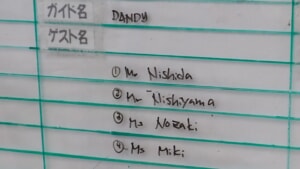 ガイド名 DANDY
ゲスト名
① Mr Nishida
② Mr Nishiyama
③ Ms Nozaki
④ Ms Miki